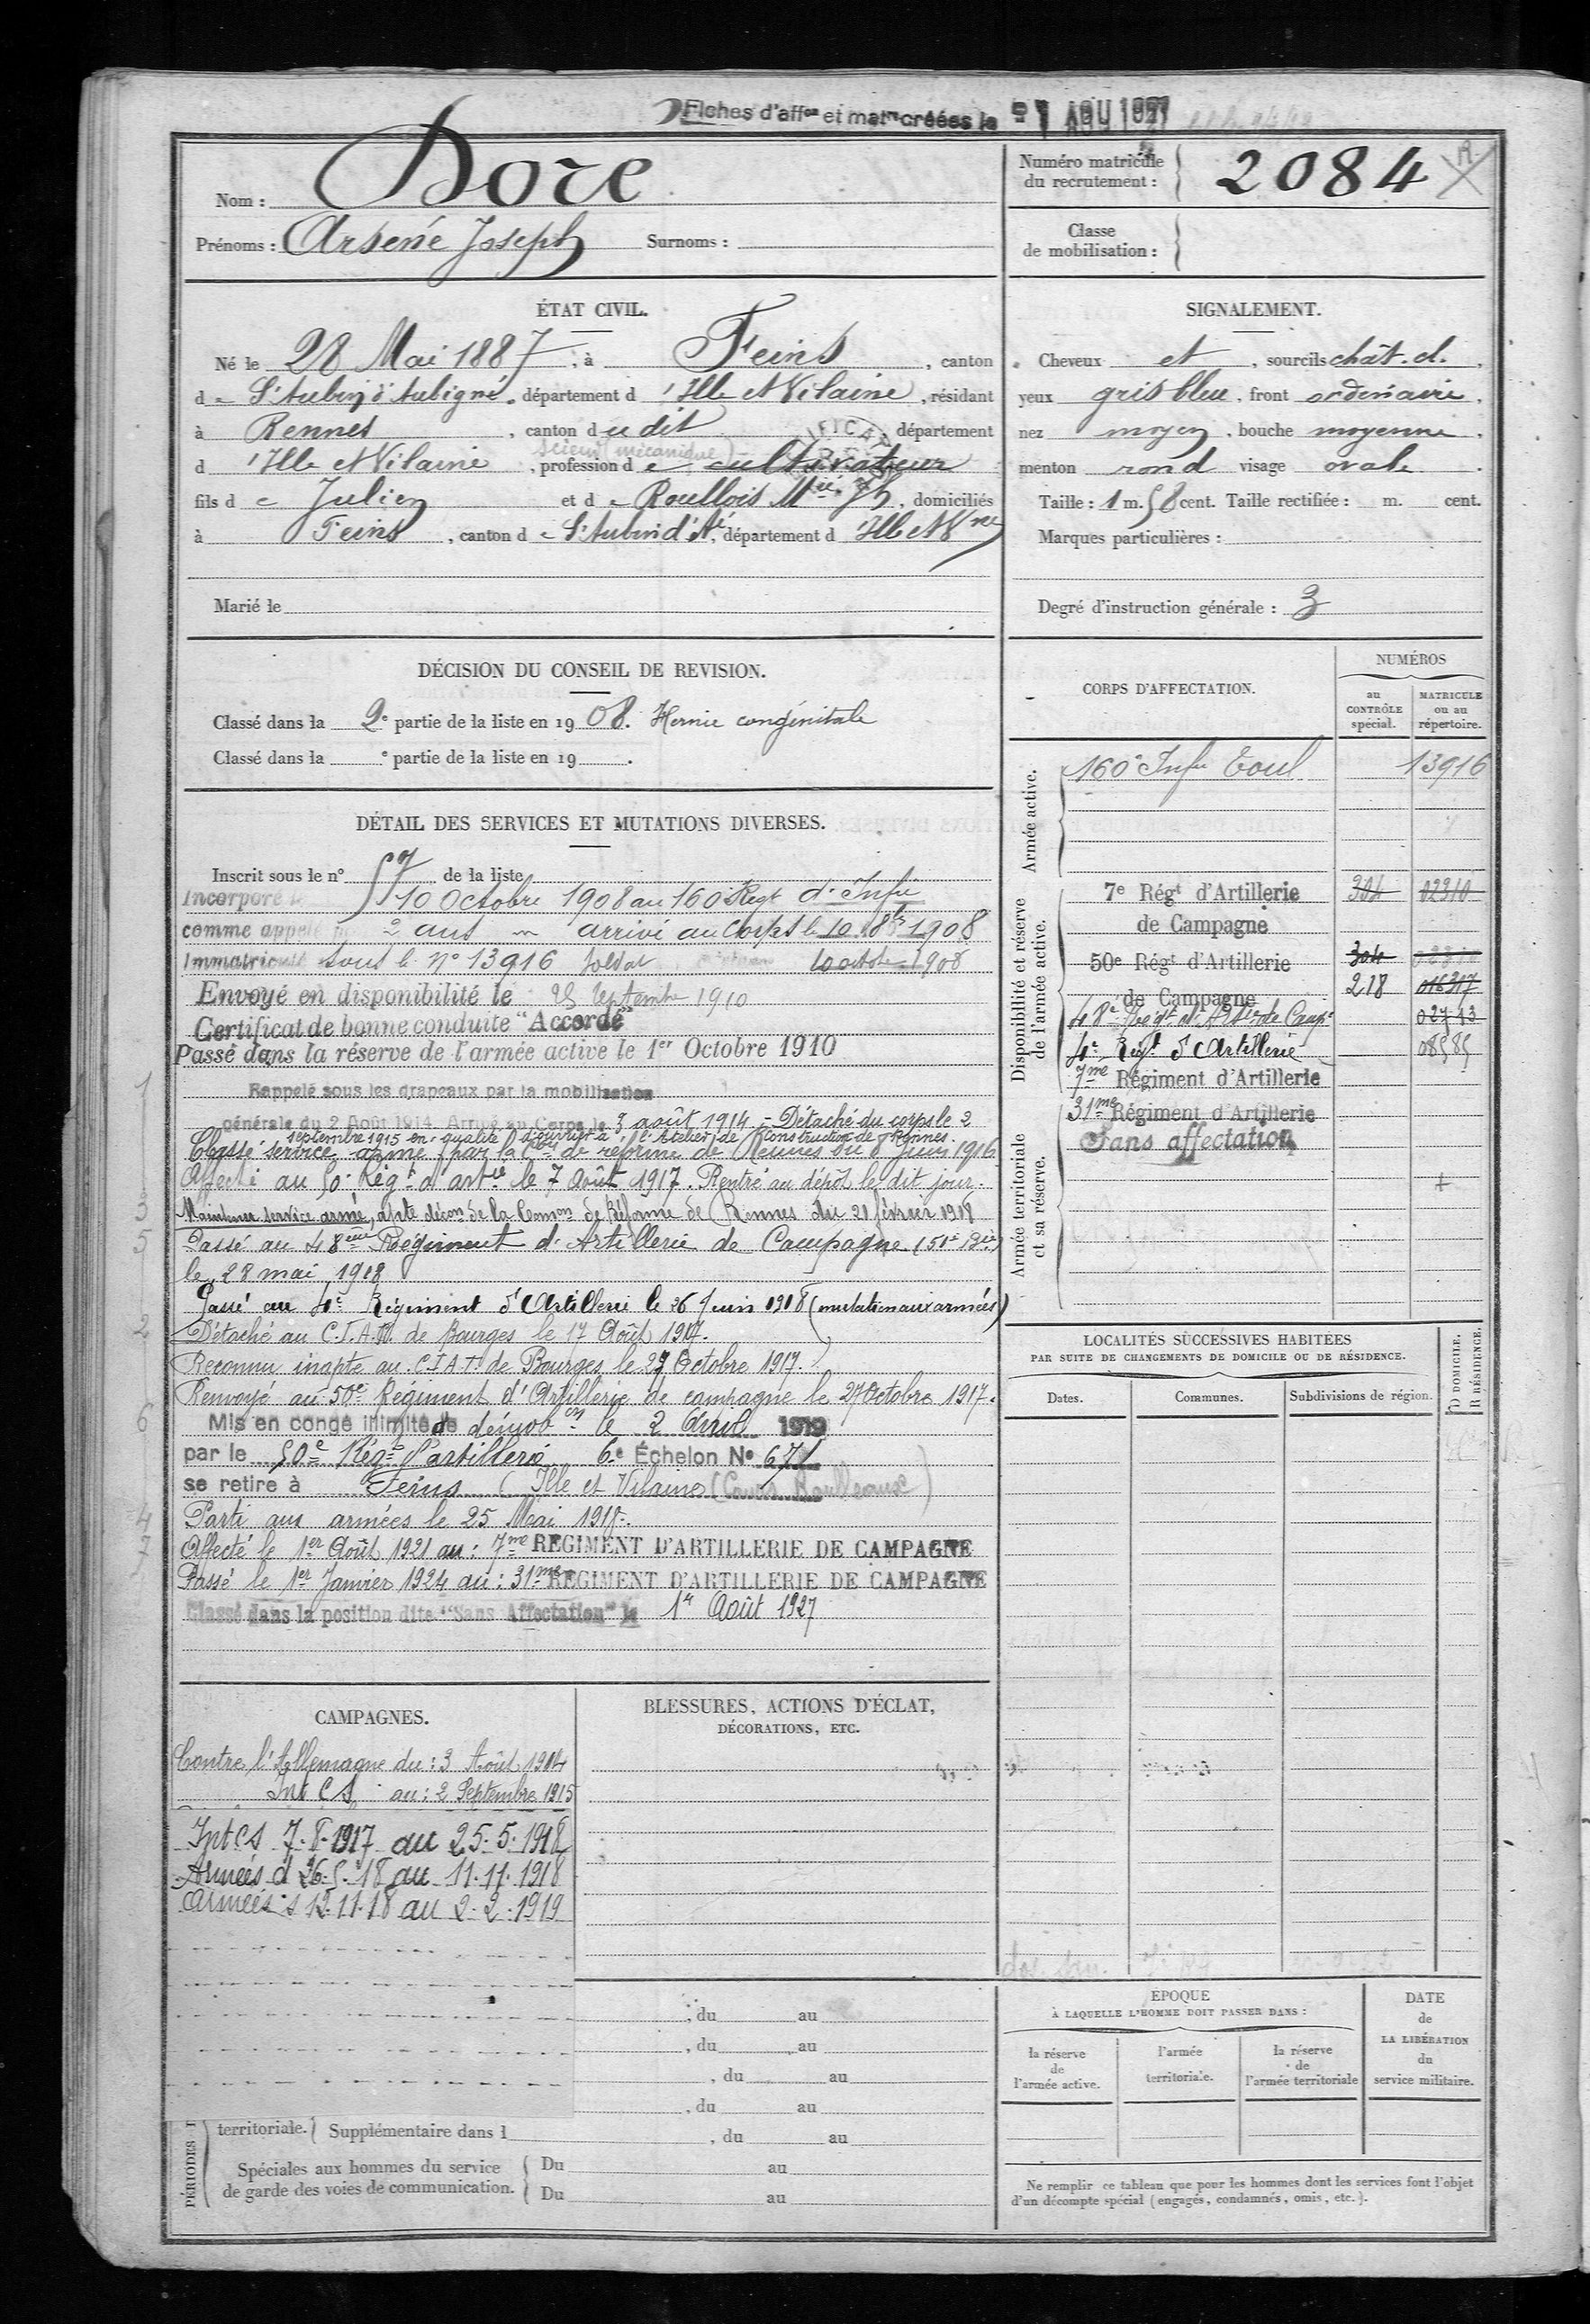 Fiches d'affon et matr créées le
Nom : Dore
Prénoms : Arsène Joseph Surnoms :
Numéro matricule du recrutement : 2084
Classe de mobilisation :
ÉTAT CIVIL.
Né le 28 Mai 1887, à Feins, canton
de St Aubin d'Aubigné, département d'Ille et Vilaine, résidant
à Rennes, canton du dit département
scieur (mécanique)
d'Ille et Vilaine, profession de cultivateur
fils de Julien et de Roullois Mie Jh, domiciliés
à Feins, canton de St Aubin d'Ae, département d'Ille et Vne
Marié le
SIGNALEMENT.
Cheveux et, sourcils chât. cl.
yeux gris bleu, front ordinaire,
nez moyen, bouche moyenne,
menton rond visage ovale.
Taille : 1 m. 58 cent. Taille rectifiée : m. cent.
Marques particulières :
Degré d'instruction générale : 3
DÉCISION DU CONSEIL DE REVISION.
Classé dans la 2e partie de la liste en 1908. Hernie congénitale
Classé dans la e partie de la liste en 19 .
DÉTAIL DES SERVICES ET MUTATIONS DIVERSES.
Inscrit sous le n° 57 de la liste
Incorporé le 10 Octobre 1908 au 160e Régt d'Infie
comme appelé 2 ans arrivé au Corps le 10 8bre 1908
Immatriculé sous le N° 13916 Soldat 10 octobre 1908
Envoyé en disponibilité le 25 Septembre 1910
Certificat de bonne conduite "Accordé"
Passé dans la réserve de l'armée active le 1er Octobre 1910
1 Rappelé sous les drapeaux par la mobilisation
générale du 2 Août 1914. Arrivé au Corps le 3 août 1914 - Détaché du corps le 2
septembre 1915 en qualité d'ouvrier à l'Atelier de Construction de Rennes.
Classé service armé par la Con de réforme de Rennes du 8 Juin 1916
Affecté au 50e Régt d'artie le 7 Août 1917. Rentré au dépôt le dit jour.
3 Maintenu service armé, apte décon de la Comon de Réforme de Rennes du 21 février 1918
5 Passé au 48ème Régiment d'Artillerie de Campagne (51e Bie)
le 28 mai 1918
Passé au 4e Régiment d'Artillerie le 26 Juin 1918 (mutation aux armées)
2 Détaché au C.I.A.T. de Bourges le 17 Août 1917.
Reconnu inapte au C.I.A.T. de Bourges le 27 Octobre 1917.
Renvoyé au 50e Régiment d'Artillerie de campagne le 27 Octobre 1917.
6 Mis en congé illimité de démobon le 2 Avril 1919
par le 50e Régt d'artillerie 6e Échelon N° 671
se retire à Feins (Ille et Vilaine)
4 Parti aux armées le 25 Mai 1918.
7 Affecté le 1er Août 1921 au : 7me REGIMENT D'ARTILLERIE DE CAMPAGNE
Passé le 1er Janvier 1924 au : 31me REGIMENT D'ARTILLERIE DE CAMPAGNE
Classé dans la position dite "Sans Affectation" le 1er Août 1927
CORPS D'AFFECTATION.
NUMÉROS
au CONTRÔLE spécial.
MATRICULE ou au répertoire.
Armée active.
160e Infie Toul 13916
Disponibilité et réserve de l'armée active.
7e Régt d'Artillerie 304 02310
de Campagne
50e Régt d'Artillerie 304
de Campagne 218 016317
48e Régt d'Artie de Campe 02743
4e Régt d'Artillerie 08585
7me Régiment d'Artillerie
Armée territoriale et sa réserve.
31me Régiment d'Artillerie
Sans affectation
LOCALITÉS SUCCESSIVES HABITÉES
PAR SUITE DE CHANGEMENTS DE DOMICILE OU DE RÉSIDENCE.
Dates. Communes. Subdivisions de région. D DOMICILE. R RÉSIDENCE.
CAMPAGNES.
Contre l'Allemagne du : 3 Août 1914
Int CS au : 2 Septembre 1915
Int CS 7.8.1917 au 25.5.1918
Armées d 26.5.18 au 11.11.1918
Armées s 12.11.18 au 2.2.1919
BLESSURES, ACTIONS D'ÉCLAT,
DÉCORATIONS, ETC.
, du au
, du au
, du au
, du au
PÉRIODES
territoriale. Supplémentaire dans l , du au
Spéciales aux hommes du service de garde des voies de communication. Du au
Du au
ÉPOQUE
À LAQUELLE L'HOMME DOIT PASSER DANS :
la réserve de l'armée active.
l'armée territoriale.
la réserve de l'armée territoriale
DATE de LA LIBÉRATION du service militaire.
Ne remplir ce tableau que pour les hommes dont les services font l'objet
d'un décompte spécial (engagés, condamnés, omis, etc.).